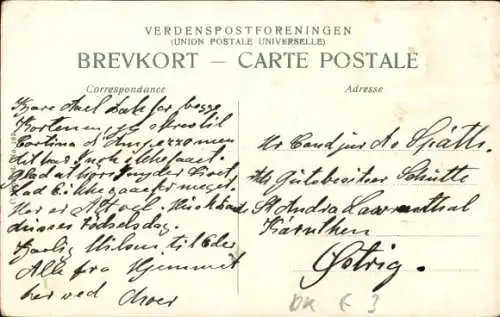 VERDENSPOSTFORENINGEN
(UNION POSTALE UNIVERSELLE)
BREVKORT — CARTE POSTALE
Correspondance
Adresse
Kære Axel Tak for begge
Kortene, jeg skrev til
Cortina d'Ampezzo men
det har I nok ikke faaet.
Glad at høre I nyder Livet,
lad E ikke gaae for meget.
Her er Alt vel. Husk
Fødselsdag.
Kærlig Hilsen til Eder
Alle fra Hjemmet
her ved Moer
Hr Cand jur A. Späth.
Adr Gutsbesitzer Schütte
St Andrä Lavantthal
Kärnthen
Østrig.
DK F 3